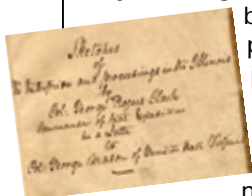 Sketches
of
his Enterprise and Proceedings in the Illinois
by
Col: George Rogers Clark
Commander of that Expedition
in a Letter
to
Col: George Mason of Gunston Hall Virginia
b
p
n